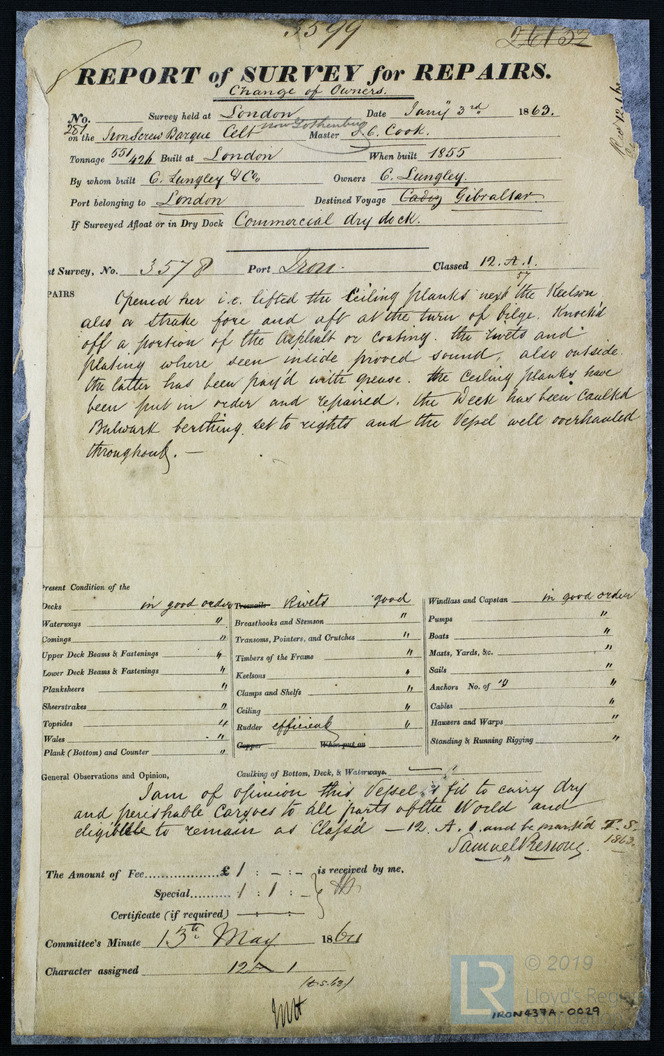 5599
26132
REPORT of SURVEY for REPAIRS.
Change of Owners.
No. 281 Survey held at London Date Jany 3rd 1863.
on the Iron Screw Barque Celt now Gothenburg Master J. C. Cook.
Tonnage 551/426 Built at London When built 1855
By whom built C. Lungley & Co Owners C. Lungley.
Port belonging to London Destined Voyage Cadiz Gibraltar
If Surveyed Afloat or in Dry Dock Commercial dry dock.
st Survey, No. 3578 Port Iron. Classed 12. A. 1.
57
PAIRS Opened her i.e. lifted the Ceiling planks next the Keelson
also a strake fore and aft at the turn of bilge. Knock'd
off a portion of the Asphalt or coating. the rivets and
plating where seen inside proved sound, also outside.
the latter has been pay'd with grease. the Ceiling planks have
been put in order and repaired. the Deck has been Caulk'd
Bulwark berthing set to rights and the Vessel well overhauled
throughout. —
Present Condition of the
Decks in good order Treenails Rivets good Windlass and Capstan in good order
Waterways " Breasthooks and Stemson " Pumps "
Comings " Transoms, Pointers, and Crutches " Boats "
Upper Deck Beams & Fastenings " Timbers of the Frame " Masts, Yards, &c. "
Lower Deck Beams & Fastenings " Keelsons " Sails "
Planksheers " Clamps and Shelfs " Anchors No. of "
Sheerstrakes " Ceiling " Cables "
Topsides " Rudder efficient " Hawsers and Warps "
Wales " Copper When put on Standing & Running Rigging "
Plank (Bottom) and Counter "
General Observations and Opinion, Caulking of Bottom, Deck, & Waterways.
I am of opinion this Vessel is fit to carry dry
and perishable Cargoes to all parts of the World and
eligible to remain as Class'd — 12. A. 1. and be mark'd T. S.
1863.
Samuel Pesious.
The Amount of Fee...... £ 1 : - : - is received by me,
Special......... 1 : 1 : -
Certificate (if required)
Committee's Minute 13th May 1864
Character assigned 12 A 1
(T.S.63)
© 2019
LR
Lloyd's Regis
IRON437A-0029